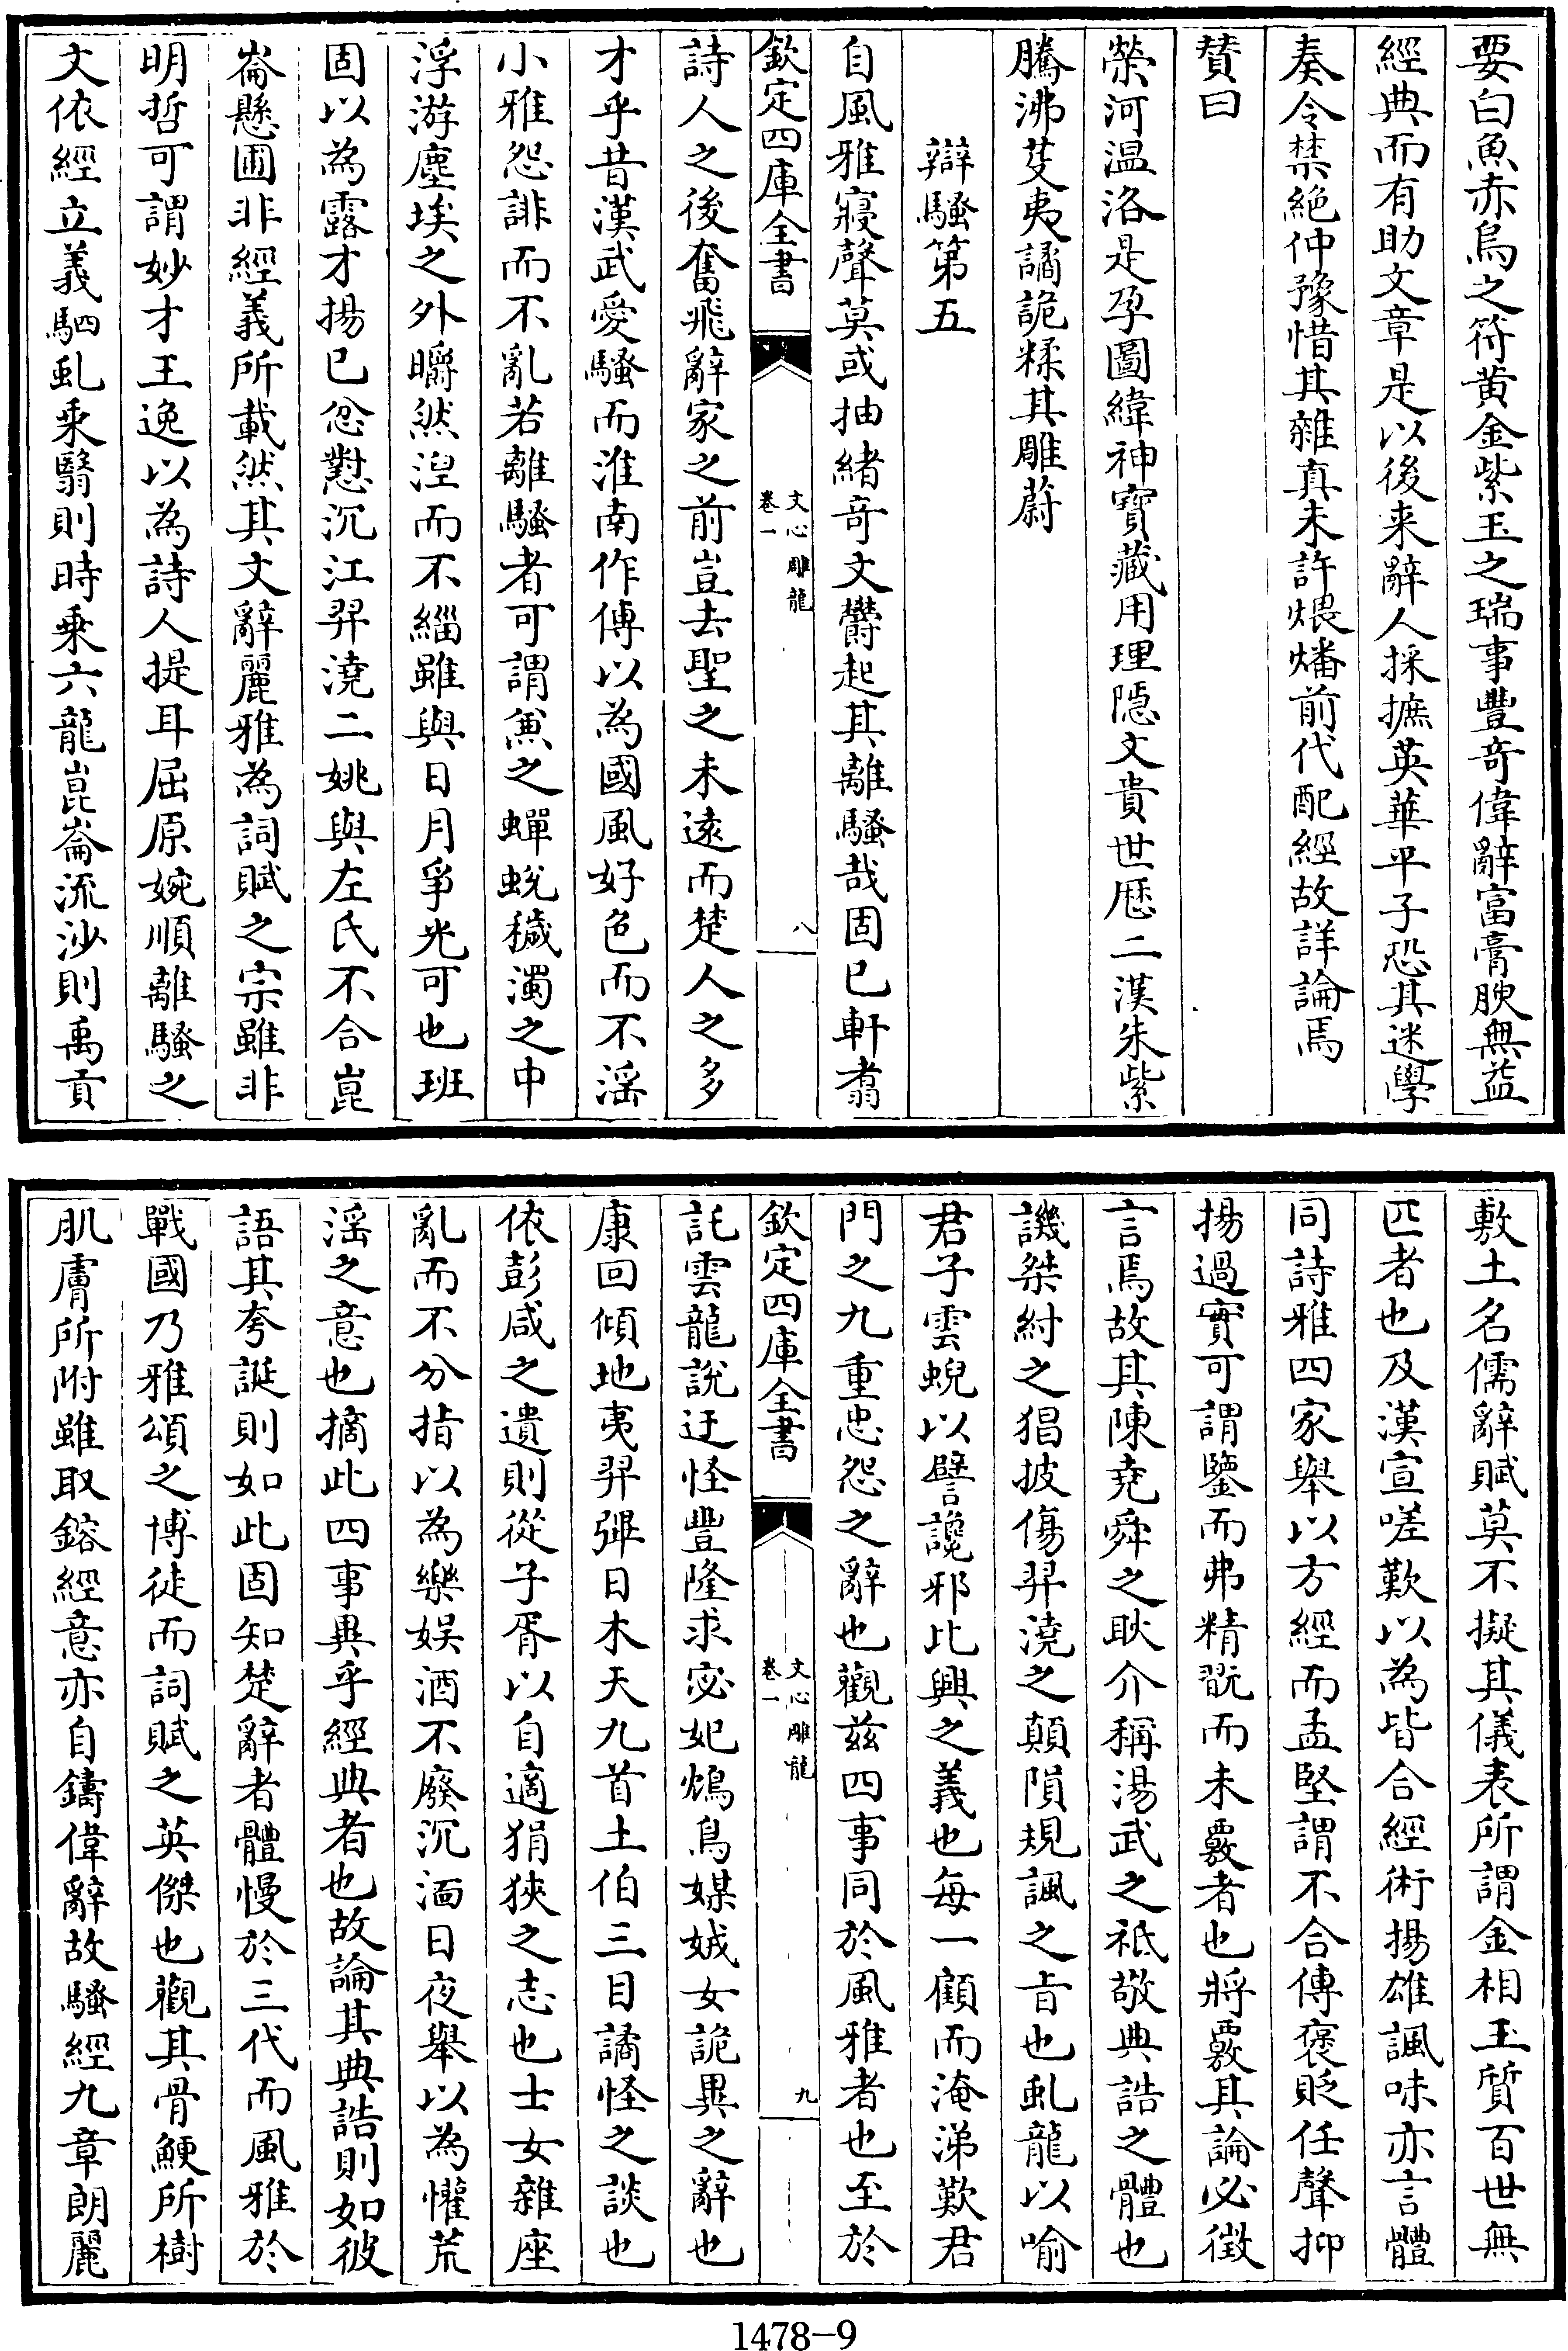 要白魚赤烏之符黃金紫玉之瑞事豐奇偉辭富膏腴無益
經典而有助文章是以後来辭人採摭英華平子恐其迷學
奏令禁絶仲豫惜其雜真未許煨燔前代配經故詳論焉
賛曰
榮河温洛是孕圖緯神寶藏用理隠文貴世厯二漢朱紫
騰沸芟夷譎詭糅其雕蔚
辯騷第五
自風雅寢聲莫或抽緒奇文欝起其離騷哉固已軒翥
欽定四庫全書
文心雕龍
卷一
八
詩人之後奮飛辭家之前豈去聖之未逺而楚人之多
才乎昔漢武愛騷而淮南作傳以為國風好色而不淫
小雅怨誹而不亂若離騷者可謂兼之蟬蛻穢濁之中
浮游塵埃之外皭然涅而不緇雖與日月爭光可也班
固以為露才揚已忿懟沉江羿澆二姚與左氏不合崑
崙懸圃非經義所載然其文辭麗雅為詞賦之宗雖非
明哲可謂妙才王逸以為詩人提耳屈原婉順離騷之
文依經立義駟虬乘翳則時乘六龍崑崙流沙則禹貢
敷土名儒辭賦莫不擬其儀表所謂金相玉質百世無
匹者也及漢宣嗟歎以為皆合經術揚雄諷味亦言體
同詩雅四家舉以方經而孟堅謂不合傳褒貶任聲抑
揚過實可謂鑒而弗精翫而未覈者也將覈其論必徵
言焉故其陳堯舜之耿介稱湯武之祗敬典誥之體也
譏桀紂之猖披傷羿澆之顛隕規諷之旨也虬龍以喻
君子雲蜺以譬讒邪比興之義也每一顧而淹涕歎君
門之九重忠怨之辭也觀兹四事同於風雅者也至於
欽定四庫全書
文心雕龍
卷一
九
託雲龍說迂怪豐隆求宓妃鴆鳥媒娀女詭異之辭也
康回傾地夷羿彈日木夫九首土伯三目譎怪之談也
依彭咸之遺則從子胥以自適狷狹之志也士女雜座
亂而不分指以為樂娯酒不廢沉湎日夜舉以為懽荒
淫之意也摘此四事異乎經典者也故論其典誥則如彼
語其夸誕則如此固知楚辭者體慢於三代而風雅於
戰國乃雅頌之博徒而詞賦之英傑也觀其骨鯁所樹
肌膚所附雖取鎔經意亦自鑄偉辭故騷經九章朗麗
1478-9